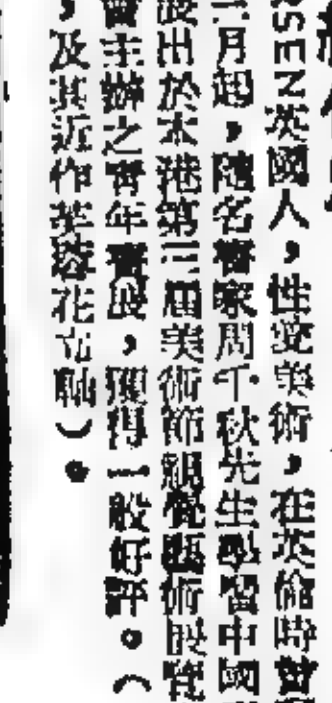 SEN英國人，性愛美術，在英倫時曾
二月起，隨名畫家周千秋先生學習中國
展出於本港第三届美術節視覺藝術展覽
會主辦之青年畫展，獲得一般好評。（
，及其近作芙蓉花立軸）。